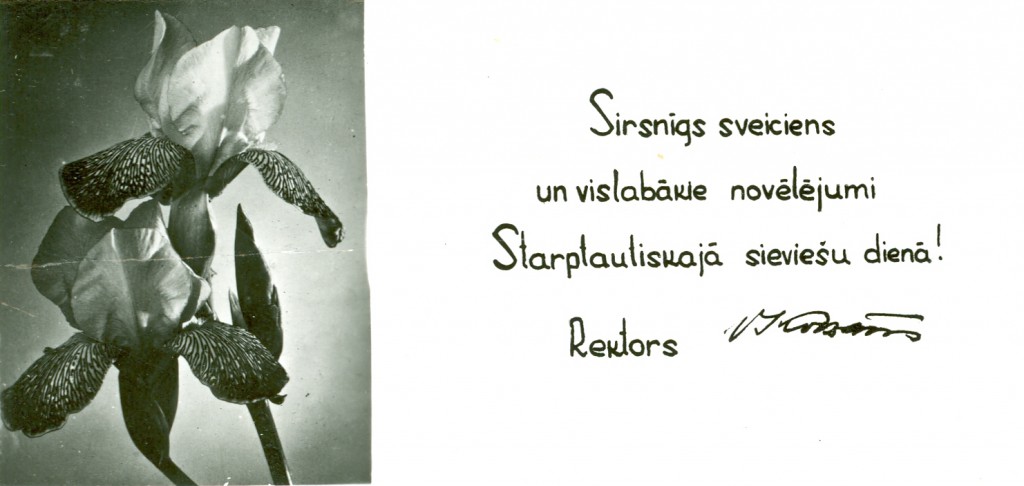 Sirsnīgs sveiciens
un vislabākie novēlējumi
Starptautiskajā sieviešu dienā!
Rektors